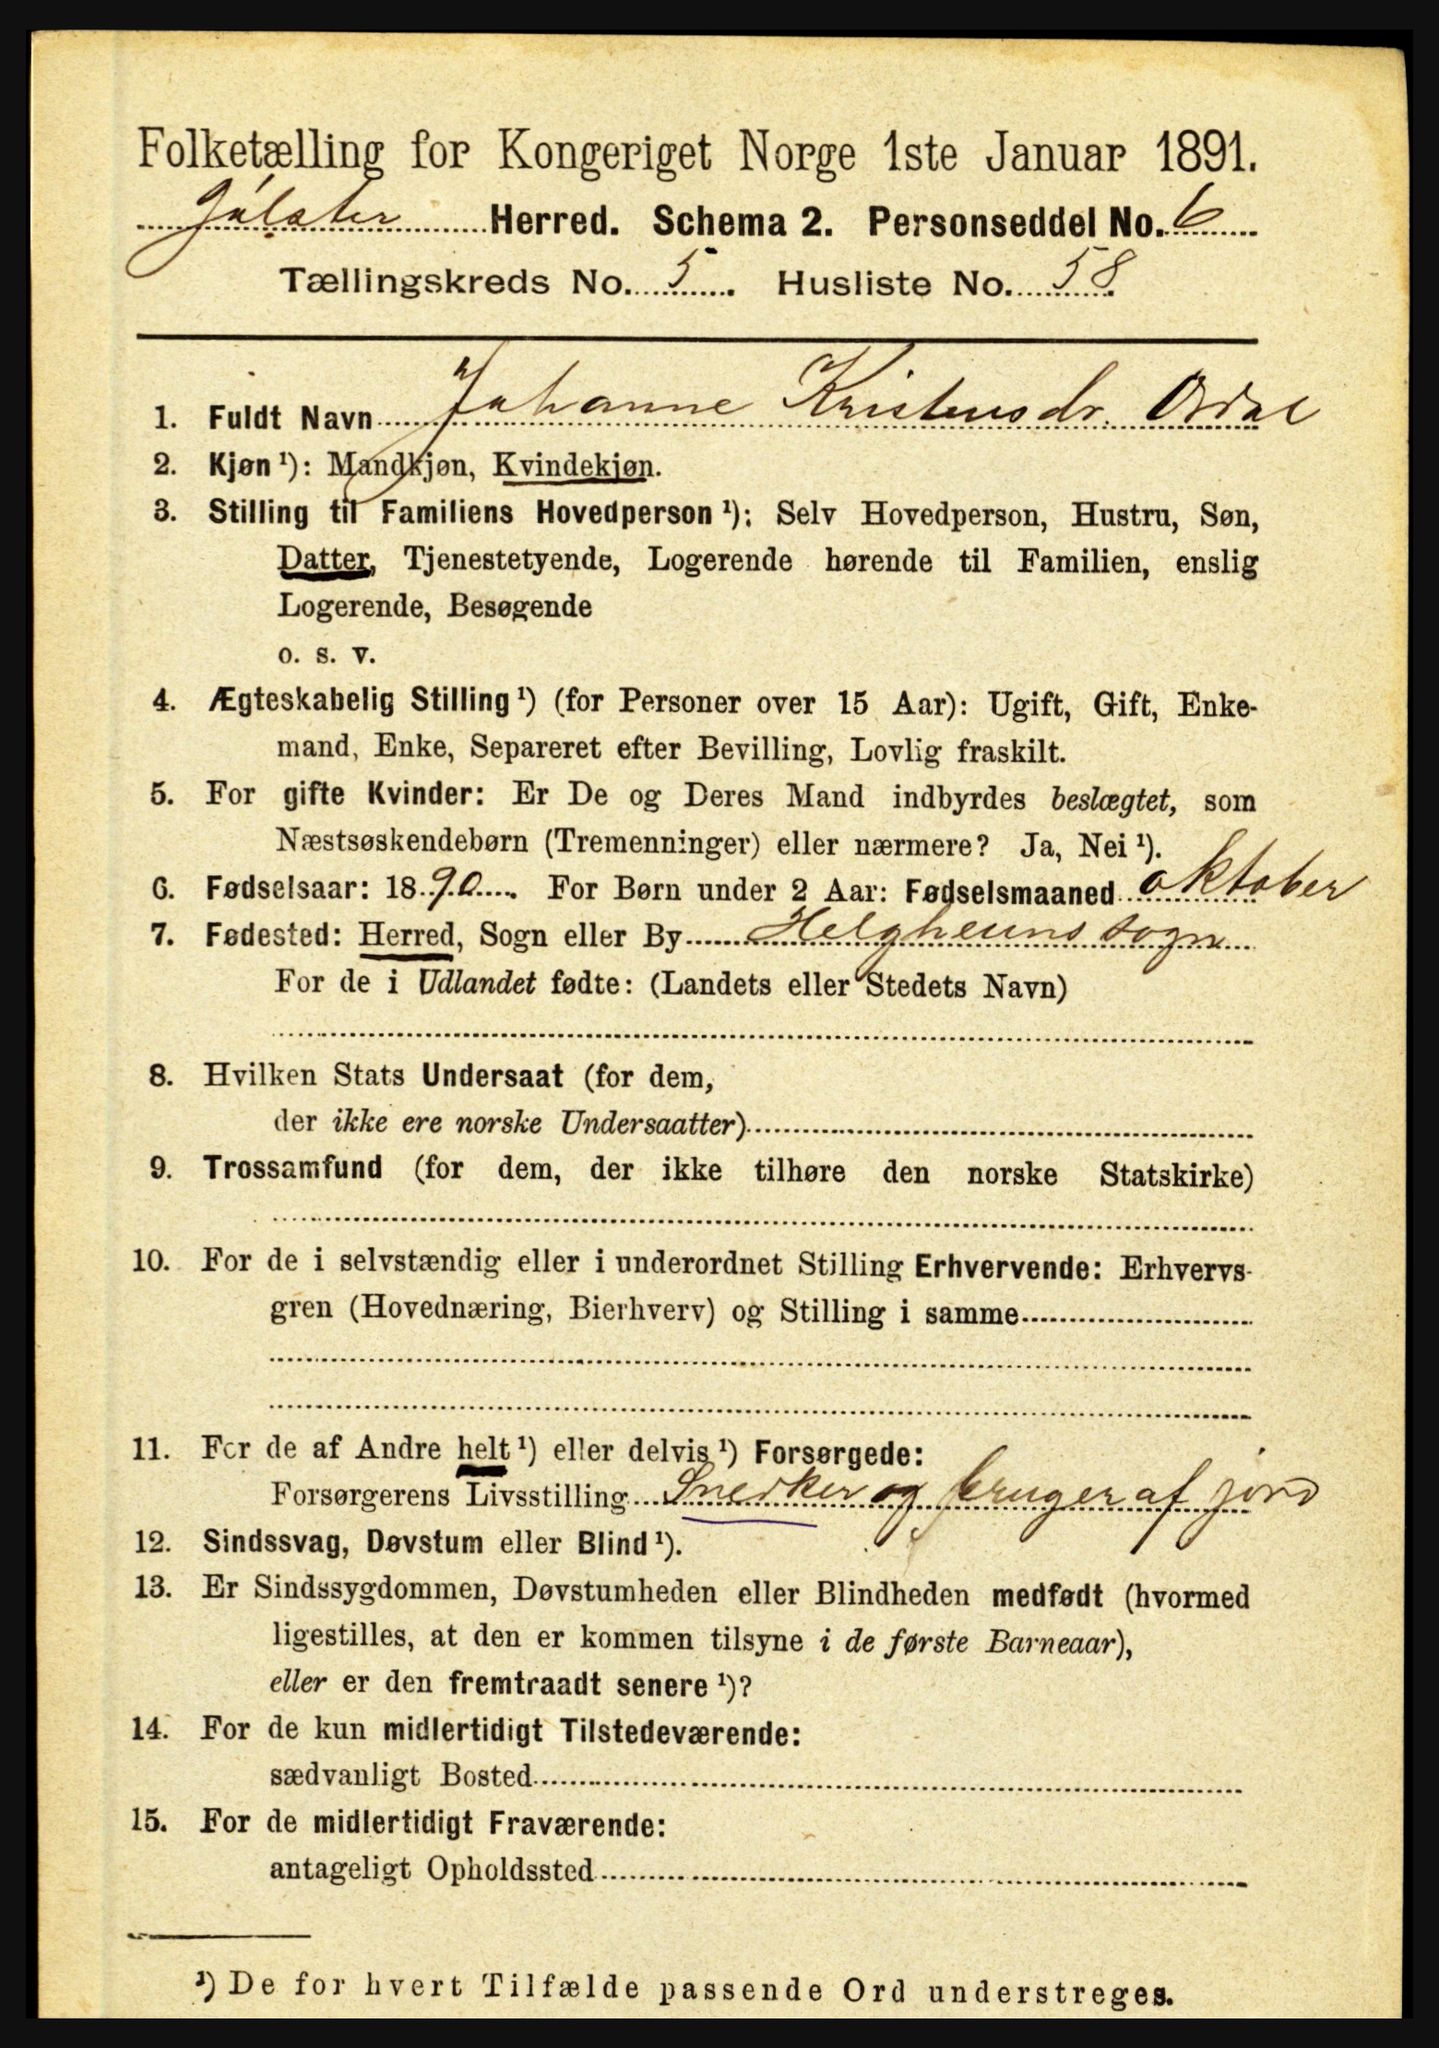 Folketælling for Kongeriget Norge 1ste Januar 1891.
Jølster Herred. Schema 2. Personseddel No. 6
Tællingskreds No. 5. Husliste No. 58
1. Fuldt Navn Johanne Kristensdr. Ordal
2. Kjøn ¹): Mandkjøn, Kvindekjøn.
3. Stilling til Familiens Hovedperson ¹): Selv Hovedperson, Hustru, Søn,
Datter, Tjenestetyende, Logerende hørende til Familien, enslig
Logerende, Besøgende
o. s. v.
4. Ægteskabelig Stilling ¹) (for Personer over 15 Aar): Ugift, Gift, Enke-
mand, Enke, Separeret efter Bevilling, Lovlig fraskilt.
5. For gifte Kvinder: Er De og Deres Mand indbyrdes beslægtet, som
Næstsøskendebørn (Tremenninger) eller nærmere? Ja, Nei ¹).
6. Fødselsaar: 1890. For Børn under 2 Aar: Fødselsmaaned oktober
7. Fødested: Herred, Sogn eller By Helgheims sogn
For de i Udlandet fødte: (Landets eller Stedets Navn)
8. Hvilken Stats Undersaat (for dem,
der ikke ere norske Undersaatter)
9. Trossamfund (for dem, der ikke tilhøre den norske Statskirke)
10. For de i selvstændig eller i underordnet Stilling Erhvervende: Erhvervs-
gren (Hovednæring, Bierhverv) og Stilling i samme
11. For de af Andre helt ¹) eller delvis ¹) Forsørgede:
Forsørgerens Livsstilling Snedker og bruger af jord
12. Sindssvag, Døvstum eller Blind ¹).
13. Er Sindssygdommen, Døvstumheden eller Blindheden medfødt (hvormed
ligestilles, at den er kommen tilsyne i de første Barneaar),
eller er den fremtraadt senere ¹)?
14. For de kun midlertidigt Tilstedeværende:
sædvanligt Bosted
15. For de midlertidigt Fraværende:
antageligt Opholdssted
¹) De for hvert Tilfælde passende Ord understreges.